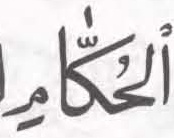 ٱلْحُكَّامِ